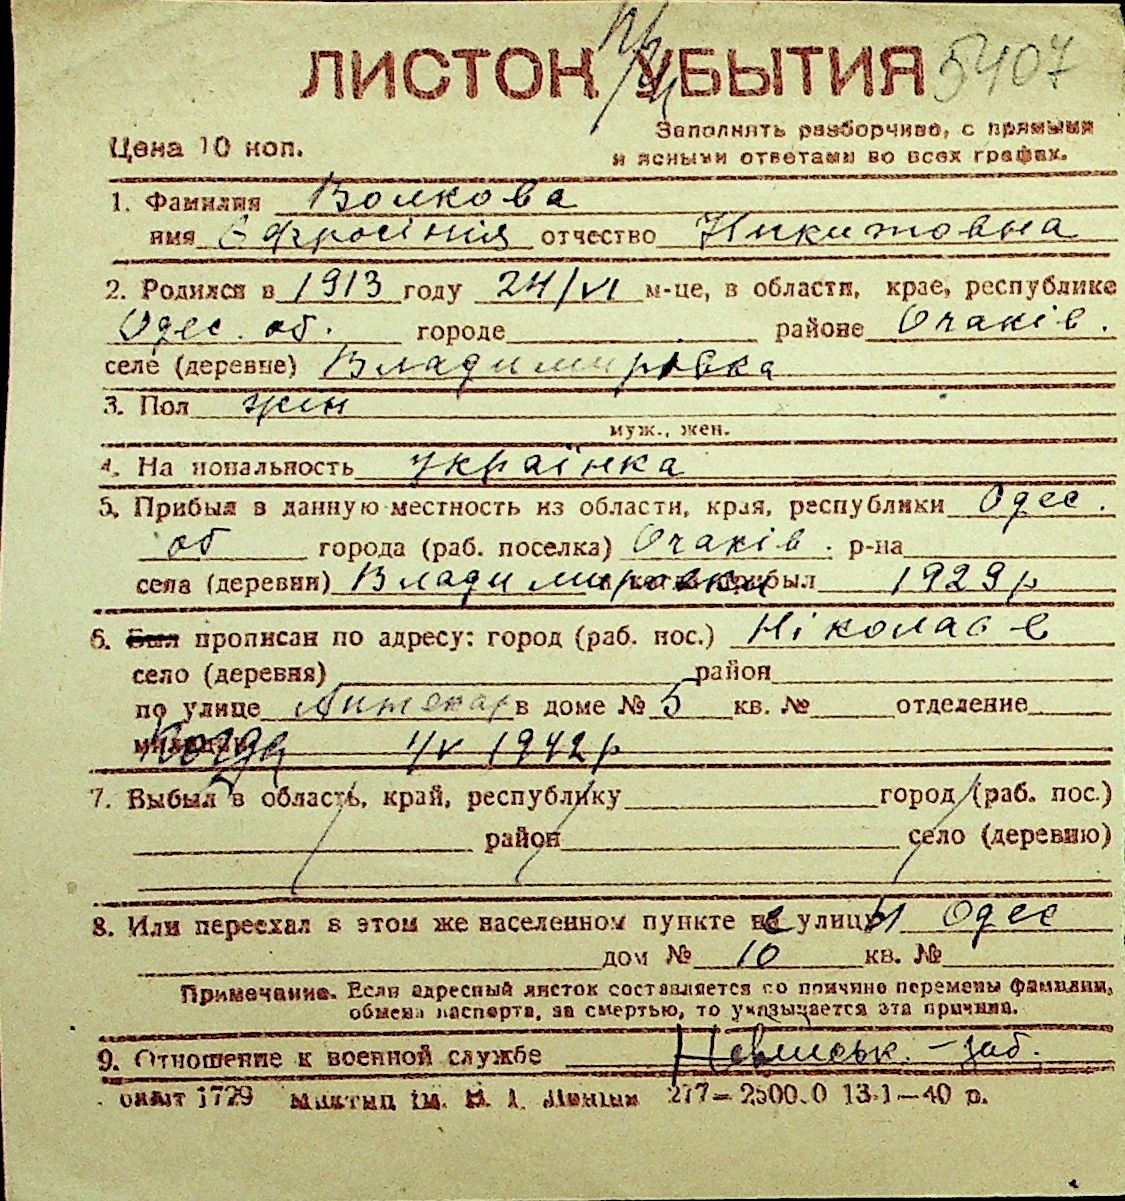 ЛИСТОК УБЫТИЯ 5407
Цена 10 коп.
Заполнять разборчиво, с прямыми
и ясными ответами во всех графах.
1. Фамилия Волкова
имя Єфросінія отчество Никитовна
2. Родился в 1913 году 24/VI м-це, в области, крае, республике
Одес. об. городе районе Очаків.
селе (деревне) Владимировка
3. Пол жін
муж., жен.
4. На иональность українка
5. Прибыл в данную местность из области, края, республики Одес.
об города (раб. поселка) Очаків. р-на
села (деревни) Владимировки прибыл 1929 р
6. Был прописан по адресу: город (раб. пос.) Ніколаєв
село (деревня) район
по улице в доме № 5 кв. № отделение
милиции Когда 1/V 1942 р
7. Выбыл в область, край, республику город (раб. пос.)
район село (деревню)
8. Или переехал в этом же населенном пункте не улицы Одес
дом № 10 кв. №
Примечание. Если адресный листок составляется по причине перемены фамилии,
обмена паспорта, за смертью, то указывается эта причина.
9. Отношение к военной службе
1729 277— 2500.0 13-1—40 р.